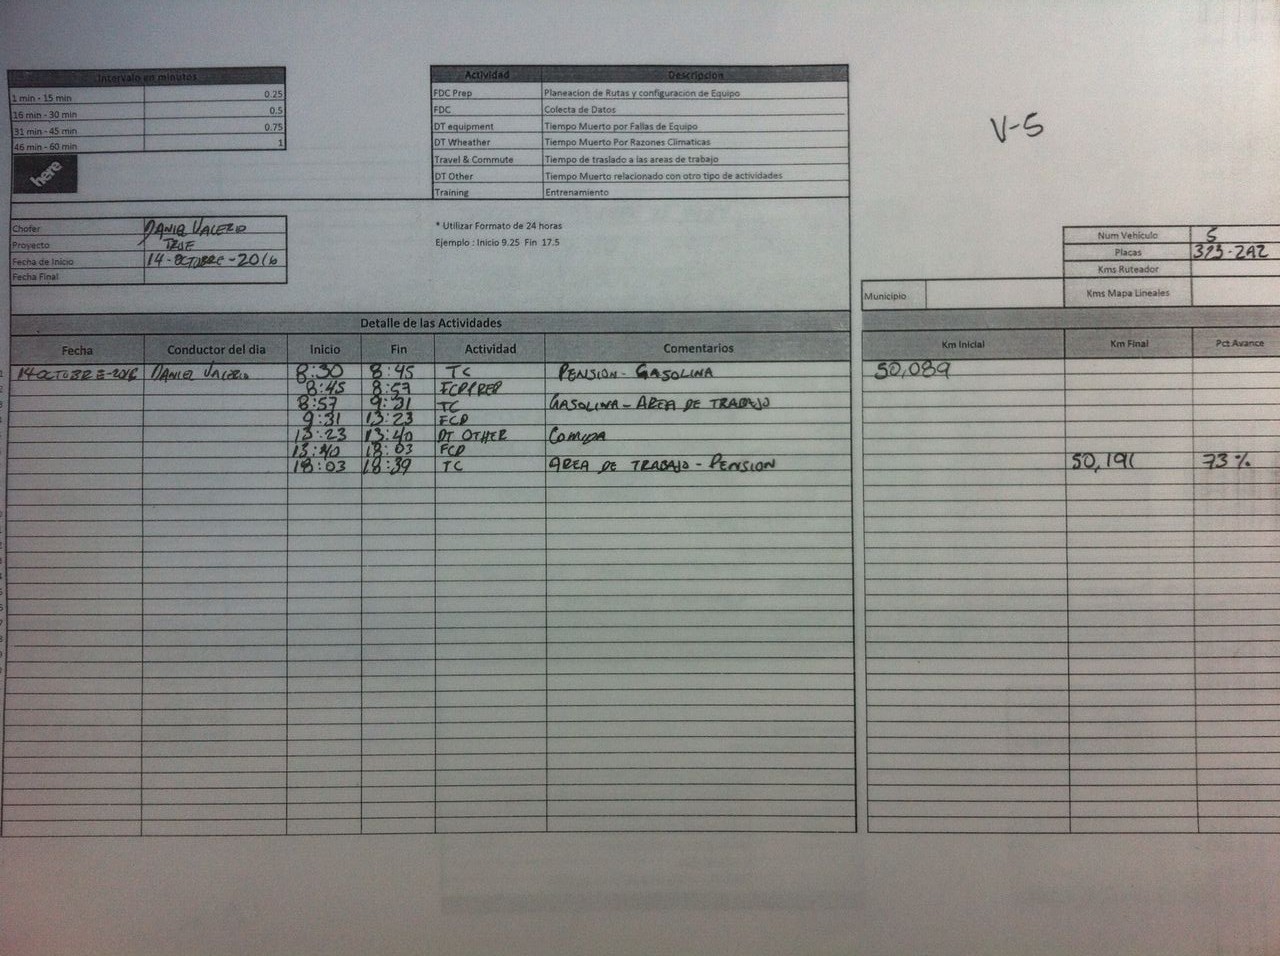 Intervalo en minutos
1 min - 15 min 0.25
16 min - 30 min 0.5
31 min - 45 min 0.75
46 min - 60 min 1
here
Actividad Descripcion
FDC Prep Planeacion de Rutas y configuracion de Equipo
FDC Colecta de Datos
DT equipment Tiempo Muerto por Fallas de Equipo
DT Wheather Tiempo Muerto Por Razones Climaticas
Travel & Commute Tiempo de traslado a las areas de trabajo
DT Other Tiempo Muerto relacionado con otro tipo de actividades
Training Entrenamiento
V-5
Chofer DANIEL VALERIO
Proyecto
Fecha de Inicio 14-OCTUBRE-2016
Fecha Final
* Utilizar Formato de 24 horas
Ejemplo : Inicio 9.25 Fin 17.5
Num Vehículo 5
Placas 323-ZAZ
Kms Ruteador
Municipio Kms Mapa Lineales
Detalle de las Actividades
Fecha Conductor del dia Inicio Fin Actividad Comentarios Km Inicial Km Final Pct Avance
14 OCTUBRE-2016 DANIEL VALERIO 8:30 8:45 TC PENSION - GASOLINA 50,089
8:45 8:57 FCP/PREP
8:57 9:31 TC GASOLINA - AREA DE TRABAJO
9:31 13:23 FCD
13:23 13:40 DT OTHER COMIDA
13:40 18:03 FCD
18:03 18:39 TC AREA DE TRABAJO - PENSION 50,191 73%